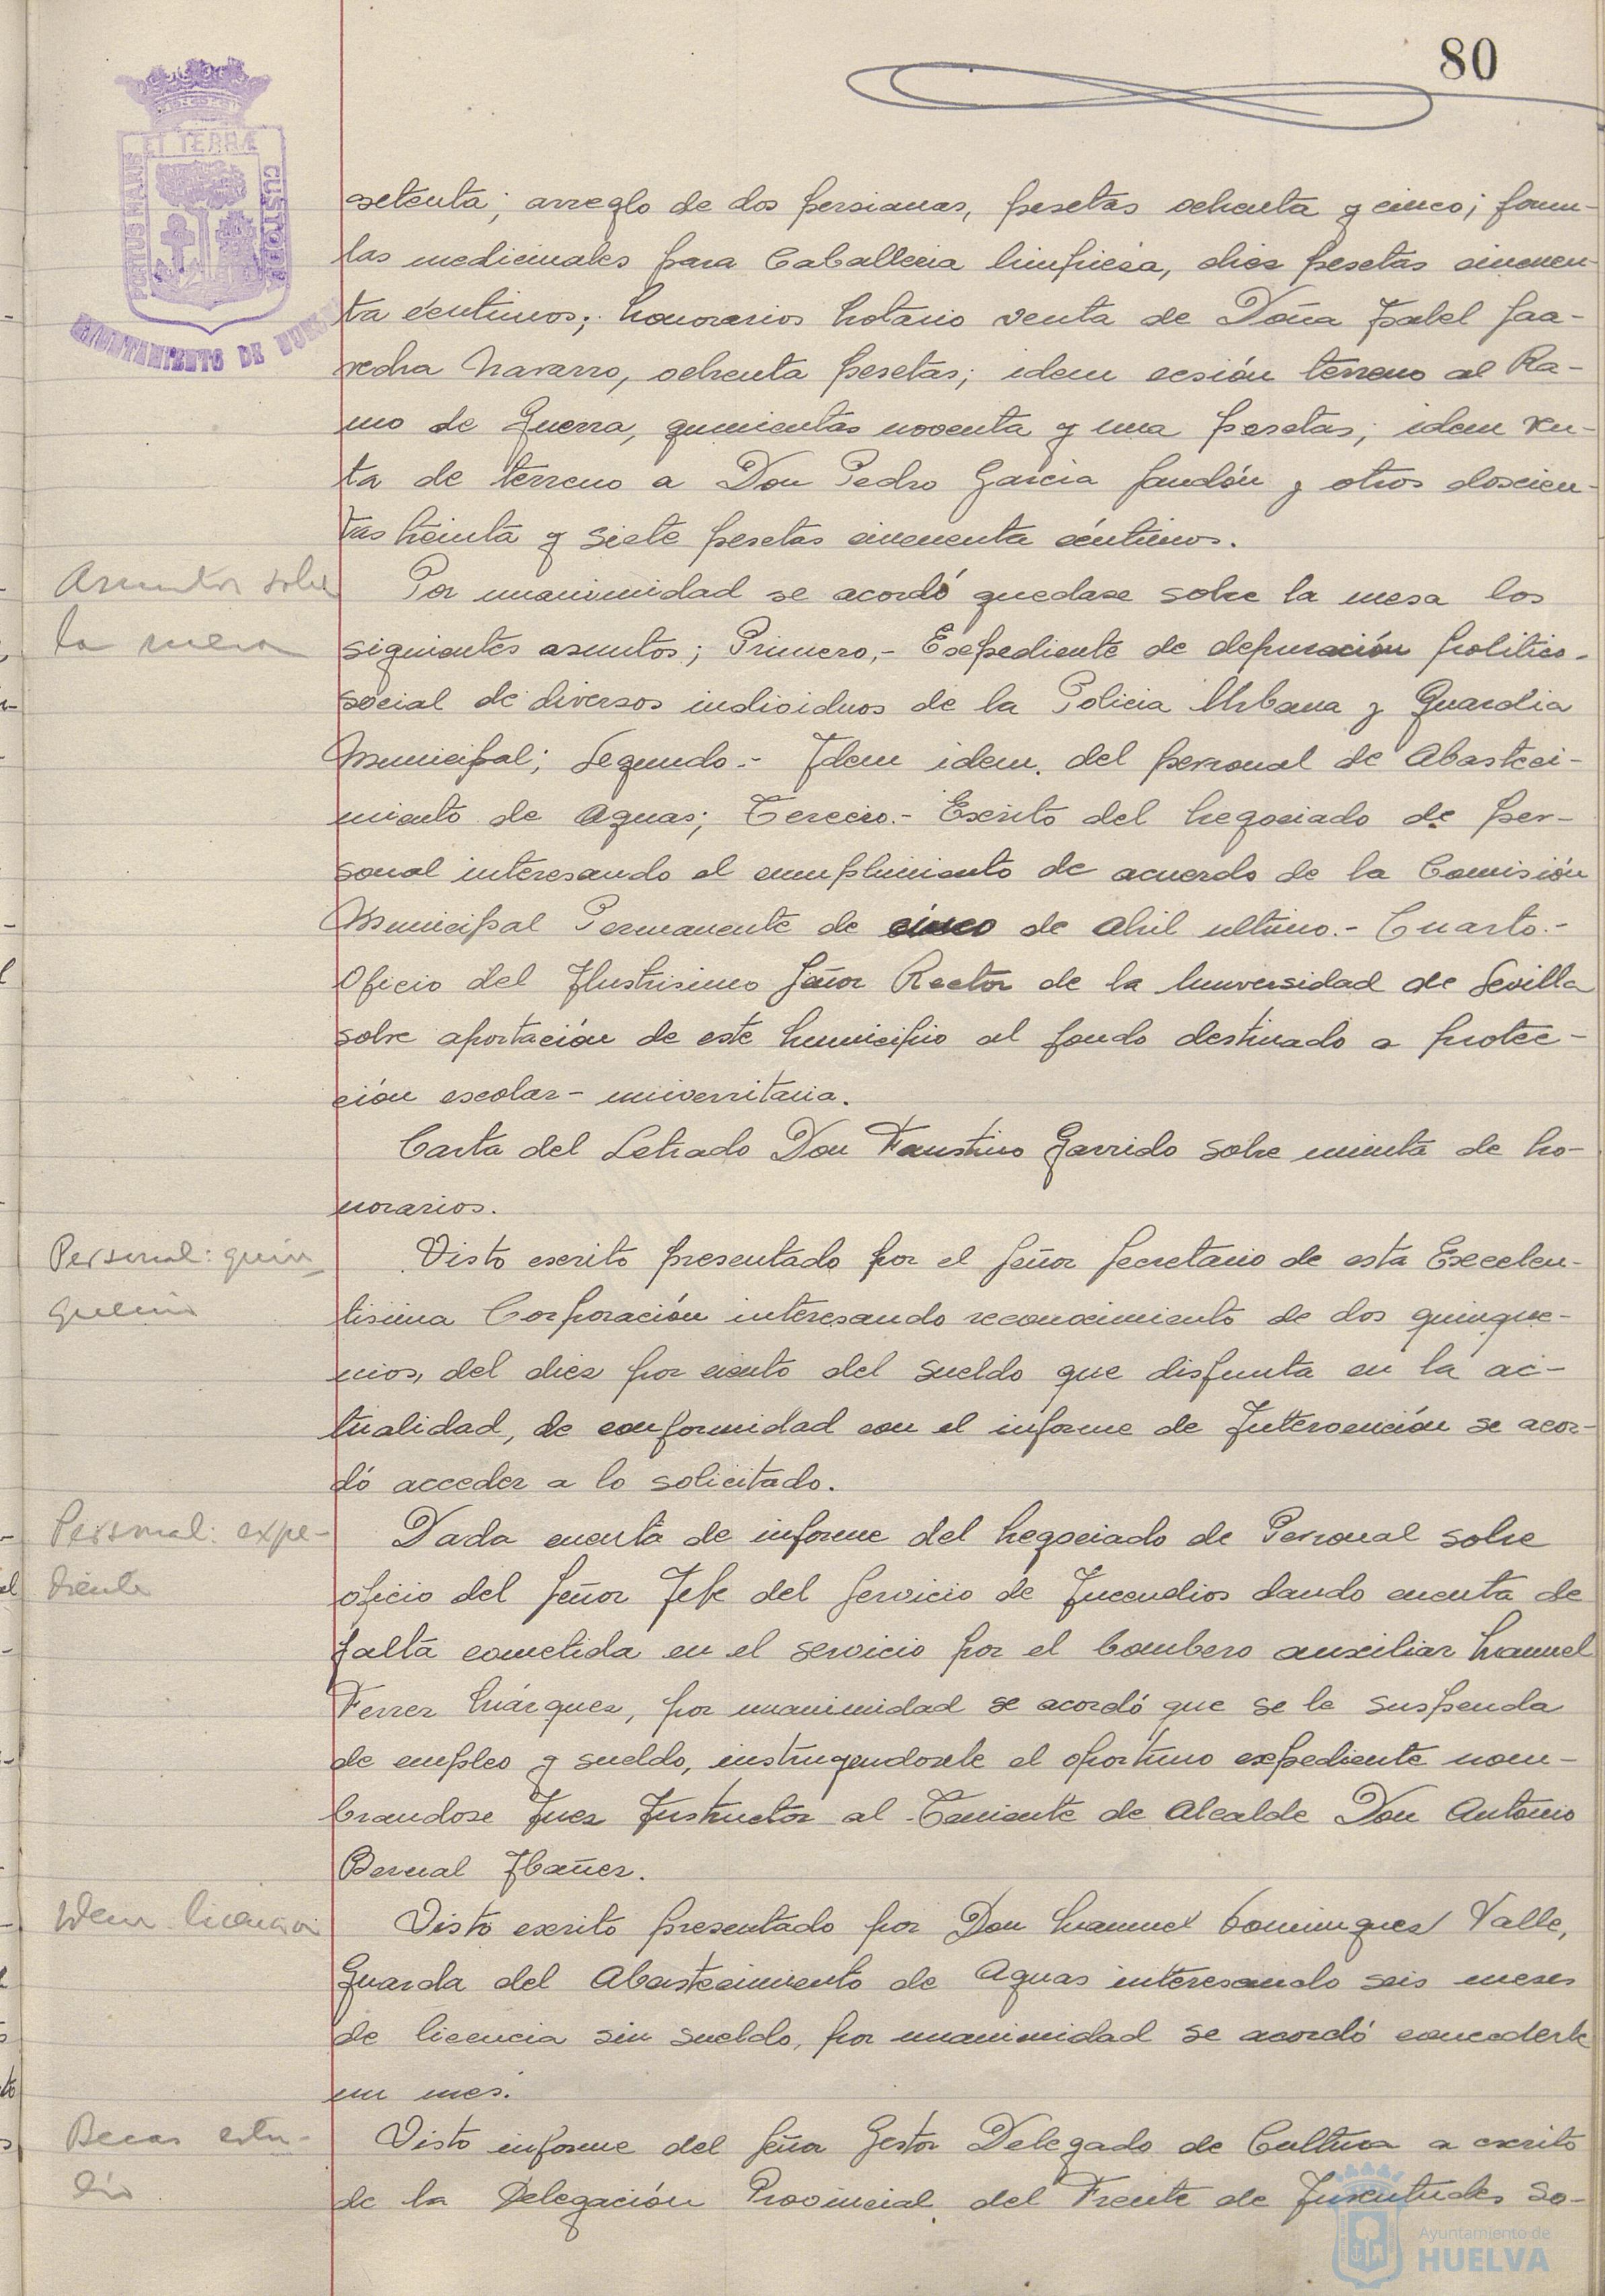 80
ET TERRÆ
PORTUS MARIS
CUSTODIA
AYUNTAMIENTO DE HUELVA
setenta; arreglo de dos persianas, pesetas ochenta y cinco; formu-
las medicinales para Caballeria limpieza, diez pesetas cincuen-
ta centimos; honorarios Notario venta de Doña Isabel Saa-
vedra Navarro, ochenta pesetas; idem cesión terreno al Ra-
mo de Guerra, quinientas noventa y una pesetas; idem ven-
ta de terreno a Don Pedro Garcia Jandón y otros doscien-
tas treinta y siete pesetas cincuenta céntimos.
Asuntos sobre
la mesa
Por unanimidad se acordó quedase sobre la mesa los
siguientes asuntos; Primero,- Expediente de depuración politico-
social de diversos individuos de la Policia Urbana y Guardia
Municipal; Segundo.- Idem idem. del personal de Abasteci-
miento de Aguas; Tercero.- Escrito del Negociado de Per-
sonal interesando el cumplimiento de acuerdo de la Comisión
Municipal Permanente de cinco de Abril ultimo.- Cuarto.-
Oficio del Ilustrisimo Señor Rector de la Universidad de Sevilla
sobre aportación de este Municipio al fondo destinado a protec-
ción escolar-universitaria.
Carta del Letrado Don Faustino Garrido sobre minuta de ho-
norarios.
Personal: quin
quenio
Visto escrito presentado por el Señor Secretario de esta Excelen-
tisima Corporación interesando reconocimiento de dos quinque-
nios, del diez por ciento del sueldo que disfruta en la ac-
tualidad, de conformidad con el informe de Intervención se acor-
dó acceder a lo solicitado.
Personal: expe-
diente
Dada cuenta de informe del Negociado de Personal sobre
oficio del Señor Jefe del Servicio de Incendios dando cuenta de
falta cometida en el servicio por el bombero auxiliar Manuel
Ferrer Márquez, por unanimidad se acordó que se le suspenda
de empleo y sueldo, instruyendosele el oportuno expediente nom-
brandose Juez Instructor al Teniente de Alcalde Don Antonio
Bernal Ibañez.
Idem licencia
Visto escrito presentado por Don Manuel Dominguez Valle,
Guarda del Abastecimiento de Aguas interesando seis meses
de licencia sin sueldo, por unanimidad se acordó concederle
un mes.
Becas estu-
dio
Visto informe del Señor Gestor Delegado de Cultura a escrito
de la Delegación Provincial del Frente de Juventudes so-
Ayuntamiento de
HUELVA